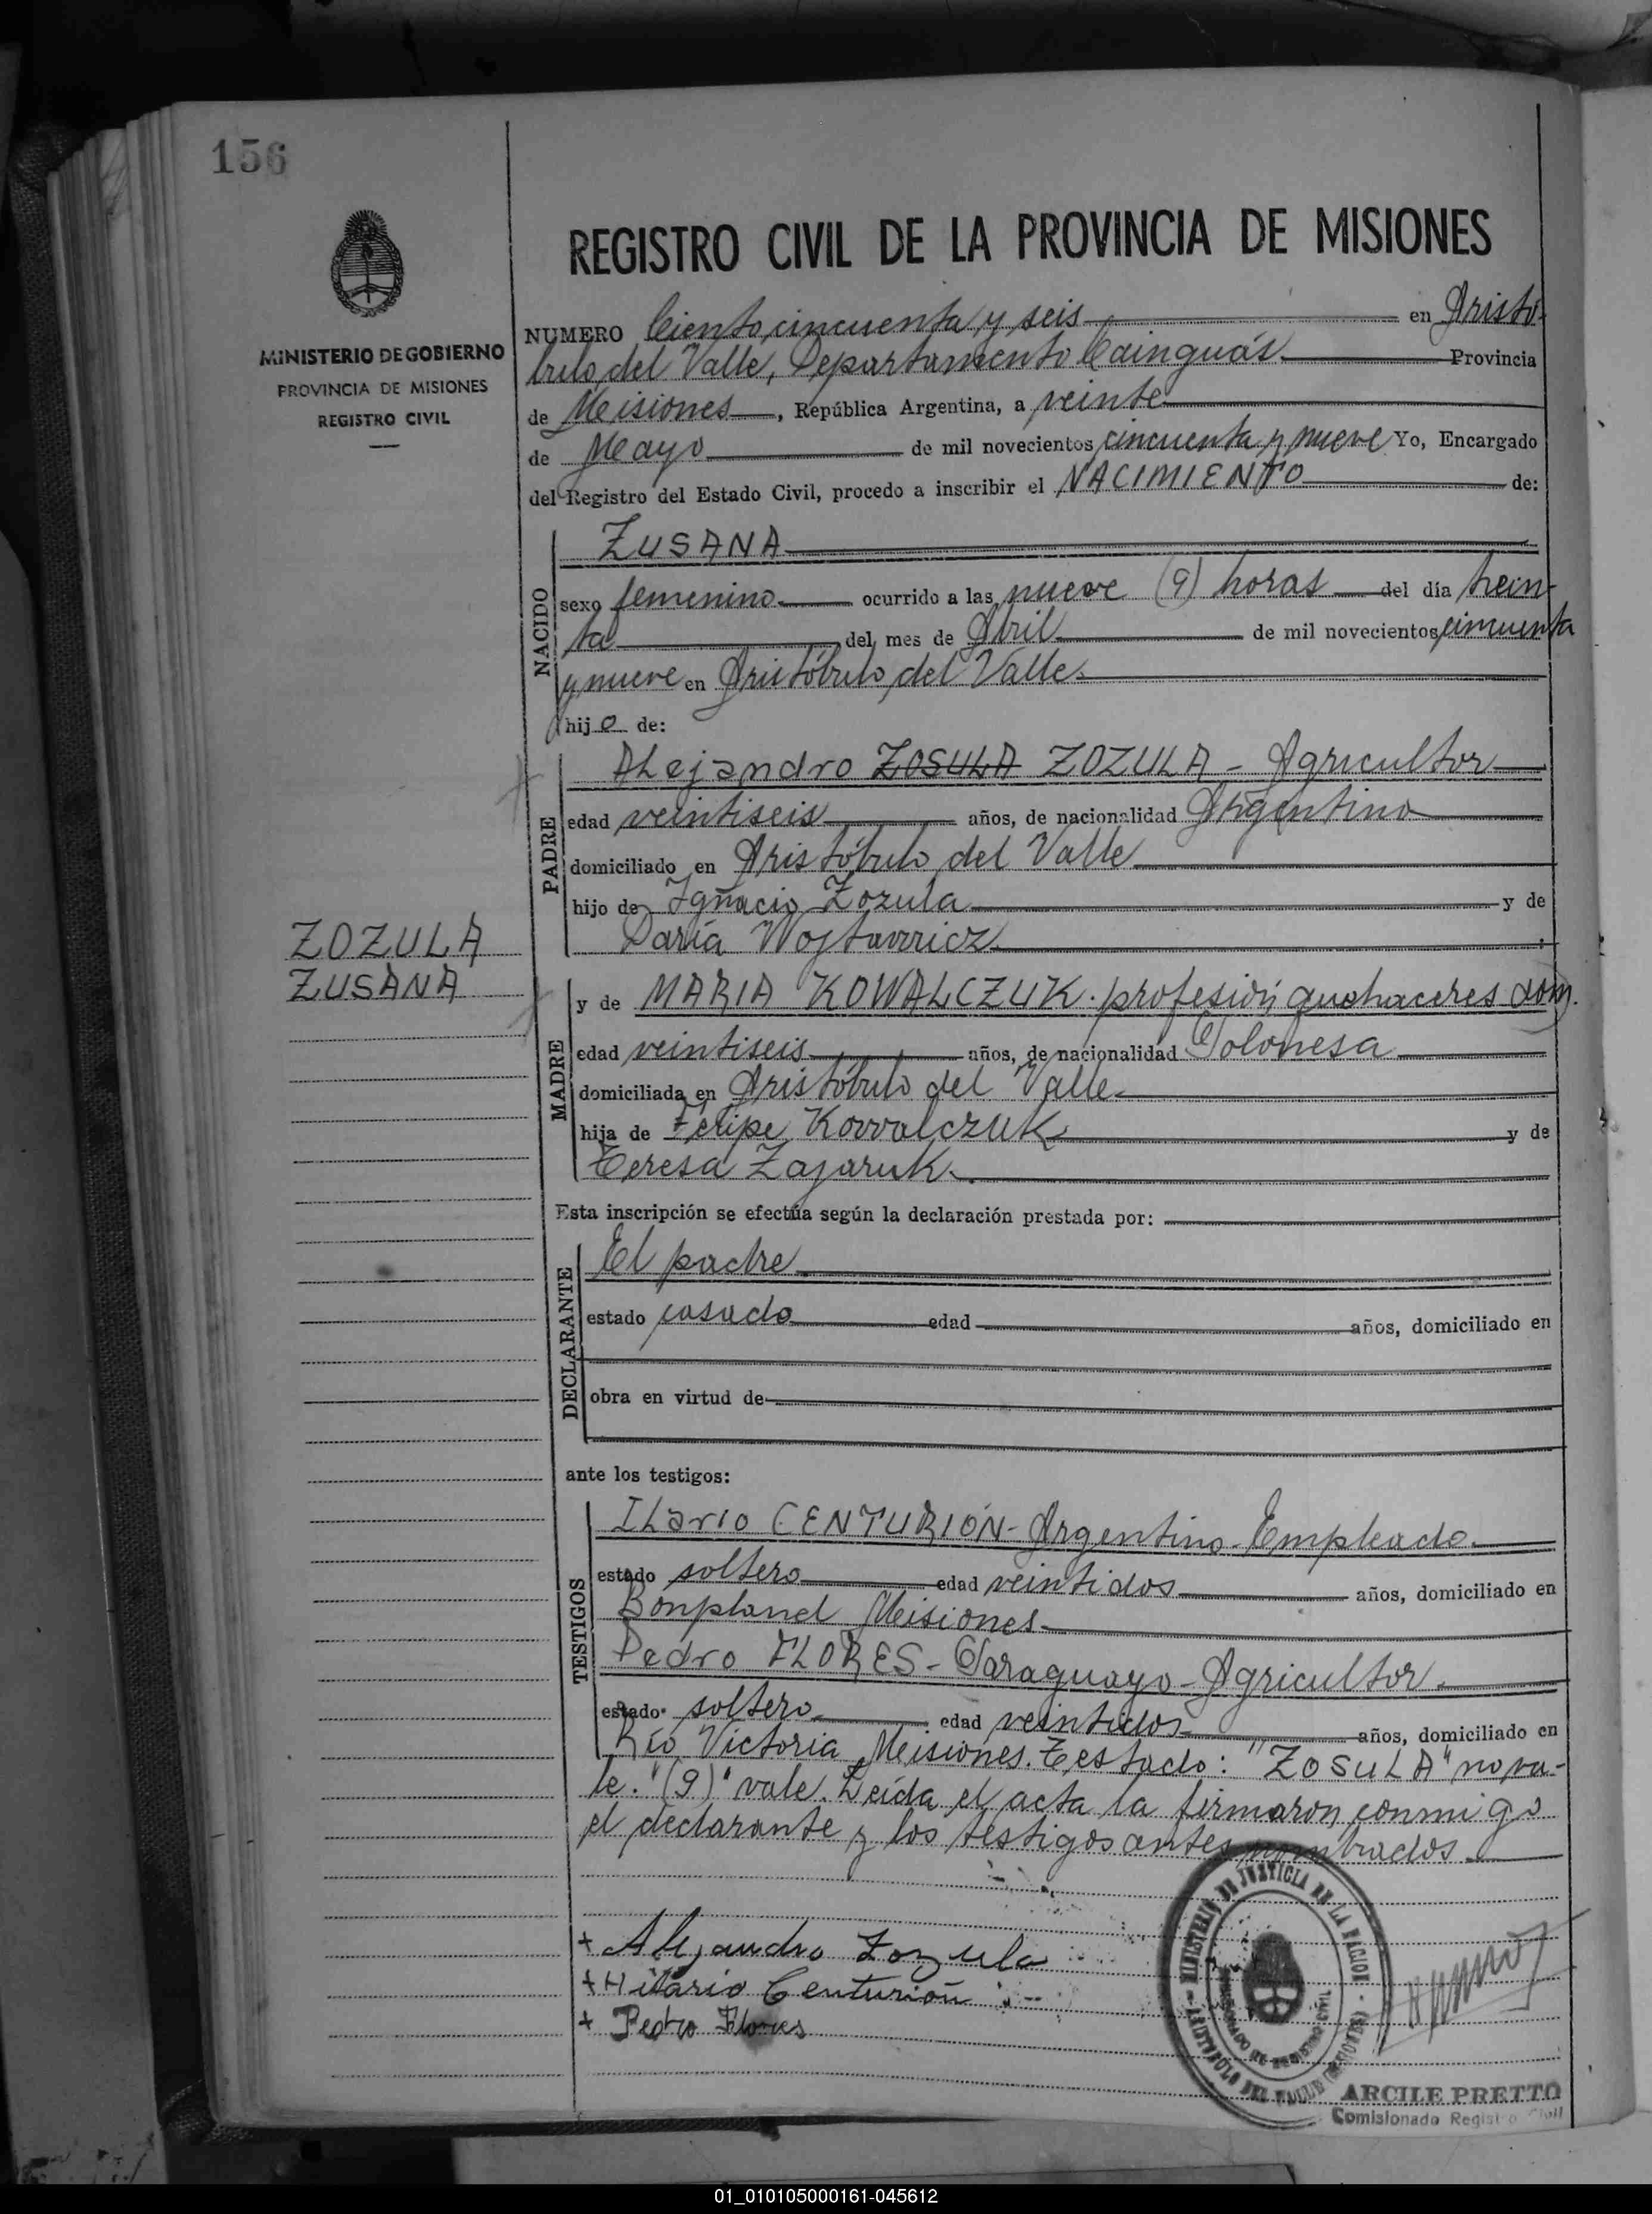 156
MINISTERIO DE GOBIERNO
PROVINCIA DE MISIONES
REGISTRO CIVIL
REGISTRO CIVIL DE LA PROVINCIA DE MISIONES
NUMERO Ciento cincuenta y seis en Aristó
bulo del Valle, Departamento Cainguás Provincia
de Misiones, República Argentina, a veinte
de Mayo de mil novecientos cincuenta y nueve Yo, Encargado
del Registro del Estado Civil, procedo a inscribir el NACIMIENTO de:
NACIDO
ZUSANA
sexo femenino ocurrido a las nueve (9) horas del día trein-
ta del mes de Abril de mil novecientos cincuenta
y nueve en Aristóbulo del Valle
hijo de:
PADRE
Alejandro ZOSULA ZOZULA - Agricultor
edad veintiseis años, de nacionalidad Argentino
domiciliado en Aristóbulo del Valle
hijo de Ignacio Zozula y de
Daria Wojtavvicz
ZOZULA
ZUSANA
MADRE
y de MARIA KOWALCZUK. profesión quehaceres dom.
edad veintiseis años, de nacionalidad Polonesa
domiciliada en Aristóbulo del Valle
hija de Felipe Kovvalczuk y de
Teresa Zajaruk.
Esta inscripción se efectúa según la declaración prestada por:
DECLARANTE
El padre
estado casado edad años, domiciliado en
obra en virtud de
ante los testigos:
TESTIGOS
Ilario CENTURIÓN - Argentino - Empleado.
estado soltero edad veintidos años, domiciliado en
Bonpland Misiones
Pedro FLORES - Paraguayo - Agricultor.
estado soltero edad veintidos años, domiciliado en
Río Victoria Misiones. Testado: "ZOSULA" no va-
le. "(9)" vale. Leída el acta la firmaron conmigo
el declarante y los testigos antes nombrados.
+ Alejandro Zozula
+ Hilario Centurión
+ Pedro Flores
MINISTERIO DE JUSTICIA DE LA NACION
ARISTOBULO DEL VALLE (MISIONES)
ARCILE PRETTO
Comisionado Registro Civil
01_010105000161-045612